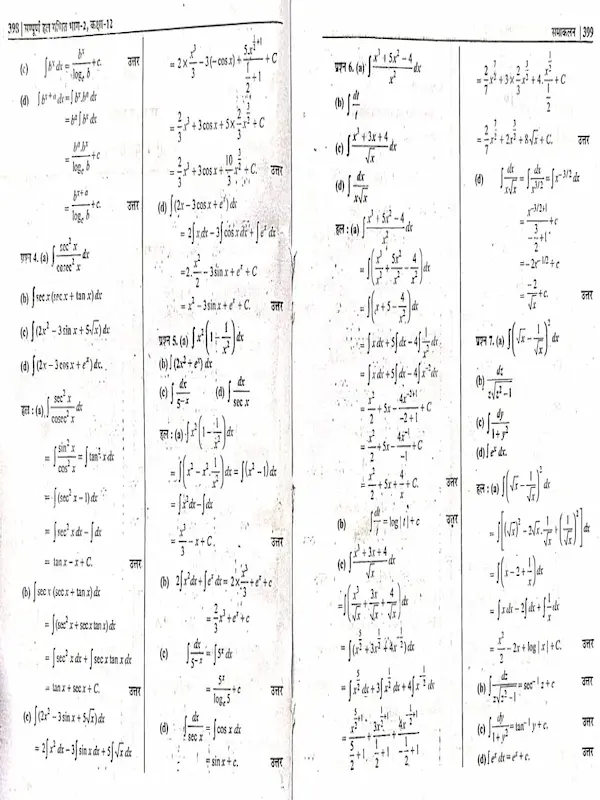 398 | सम्पूर्ण हल गणित भाग-2, कक्षा-12
(c) ∫bˣ dx = bˣ/logₑ b + c. उत्तर
(d) ∫bˣ⁺ᵃ dx = ∫bˣ.bᵃ dx
= bᵃ ∫bˣ dx
= bᵃ.bˣ/logₑ b + c
= bˣ⁺ᵃ/logₑ b + c. उत्तर
प्रश्न 4. (a) ∫ sec² x/cosec² x dx
(b) ∫sec x (sec x + tan x) dx
(c) ∫(2x² − 3 sin x + 5√x) dx
(d) ∫(2x − 3 cos x + eˣ) dx.
हल : (a) ∫ sec² x/cosec² x dx
= ∫ sin² x/cos² x = ∫tan² x dx
= ∫(sec² x − 1) dx
= ∫sec² x dx − ∫dx
= tan x − x + C. उत्तर
(b) ∫sec x (sec x + tan x) dx
= ∫(sec² x + sec x tan x) dx
= ∫sec² x dx + ∫sec x tan x dx
= tan x + sec x + C. उत्तर
(c) ∫(2x² − 3 sin x + 5√x) dx
= 2∫x² dx − 3∫sin x dx + 5∫√x dx
= 2 × x³/3 − 3(−cos x) + 5x^(1/2+1)/(1/2+1) + C
= 2/3 x³ + 3 cos x + 5 × 2/3 x^(3/2) + C
= 2/3 x³ + 3 cos x + 10/3 x^(3/2) + C. उत्तर
(d) ∫(2x − 3 cos x + eˣ) dx
= 2∫x dx − 3∫cos x dx + ∫eˣ dx
= 2.x²/2 − 3 sin x + eˣ + C
= x² − 3 sin x + eˣ + C. उत्तर
प्रश्न 5. (a) ∫x²(1 − 1/x²) dx
(b) ∫(2x² + eˣ) dx
(c) ∫ dx/5⁻ˣ (d) ∫ dx/sec x
हल : (a) ∫x²(1 − 1/x²) dx
= ∫(x² − x².1/x²) dx = ∫(x² − 1) dx
= ∫x² dx − ∫dx
= x³/3 − x + C. उत्तर
(b) 2∫x² dx + ∫eˣ dx = 2 × x³/3 + eˣ + c
= 2/3 x³ + eˣ + c उत्तर
(c) ∫ dx/5⁻ˣ = ∫5ˣ dx
= 5ˣ/logₑ 5 + c उत्तर
(d) ∫ dx/sec x = ∫cos x dx
= sin x + c. उत्तर
समाकलन | 399
प्रश्न 6. (a) ∫ (x³ + 5x² − 4)/x² dx
(b) ∫ dt/t
(c) ∫ (x³ + 3x + 4)/√x dx
(d) ∫ dx/(x√x)
हल : (a) ∫ (x³ + 5x² − 4)/x² dx
= ∫(x³/x² + 5x²/x² − 4/x²) dx
= ∫(x + 5 − 4/x²) dx
= ∫x dx + 5∫dx − 4∫1/x² dx
= ∫x dx + 5∫dx − 4∫x⁻² dx
= x²/2 + 5x − 4x⁻²⁺¹/(−2+1) + C
= x²/2 + 5x − 4x⁻¹/−1 + C
= x²/2 + 5x + 4/x + C. उत्तर
(b) ∫ dt/t = log | t | + c उत्तर
(c) ∫ (x³ + 3x + 4)/√x dx
= ∫(x³/√x + 3x/√x + 4/√x) dx
= ∫(x^(5/2) + 3x^(1/2) + 4x^(−1/2)) dx
= ∫x^(5/2) dx + 3∫x^(1/2) dx + 4∫x^(−1/2) dx
= x^(5/2+1)/(5/2+1) + 3x^(1/2+1)/(1/2+1) + 4x^(−1/2+1)/(−1/2+1)
= 2/7 x^(7/2) + 3 × 2/3 x^(3/2) + 4.x^(1/2)/(1/2) + C
= 2/7 x^(7/2) + 2x^(3/2) + 8√x + C. उत्तर
(d) ∫ dx/(x√x) = ∫ dx/x^(3/2) = ∫x^(−3/2) dx
= x^(−3/2+1)/(−3/2+1) + c
= −2x^(−1/2) + c
= −2/√x + c. उत्तर
प्रश्न 7. (a) ∫(√x − 1/√x)² dx
(b) ∫ dz/(z√(z²−1))
(c) ∫ dy/(1 + y²)
(d) ∫eˣ dx.
हल : (a) ∫(√x − 1/√x)² dx
= ∫[(√x)² − 2√x.1/√x + (1/√x)²] dx
= ∫(x − 2 + 1/x) dx
= ∫x dx − 2∫dx + ∫1/x dx
= x²/2 − 2x + log | x | + C. उत्तर
(b) ∫ dz/(z√(z²−1)) = sec⁻¹ z + c उत्तर
(c) ∫ dy/(1 + y²) = tan⁻¹ y + c. उत्तर
(d) ∫eˣ dx = eˣ + c. उत्तर